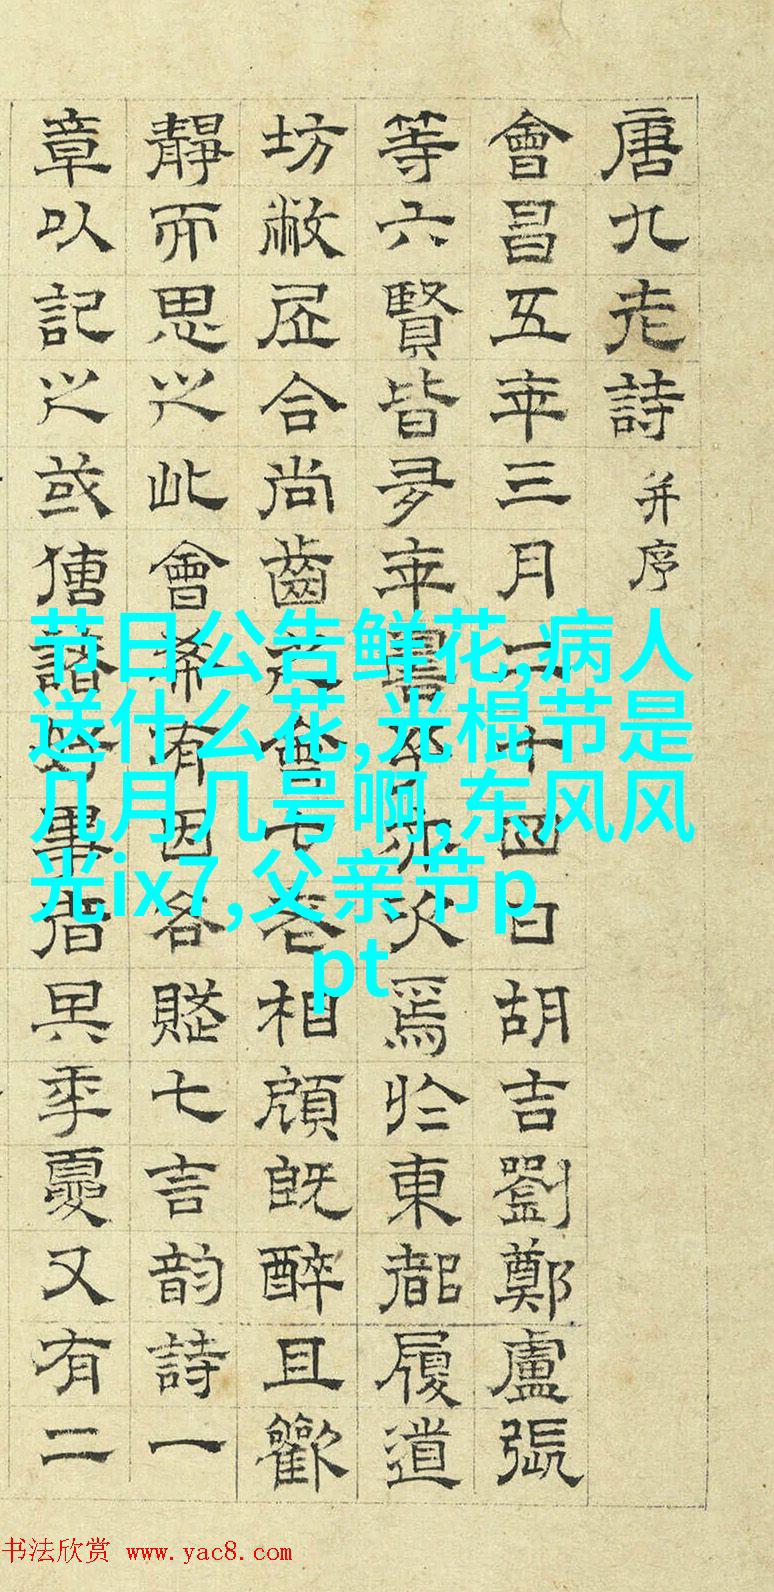 唐九老詩
并序
會昌五年三月二十四日胡吉劉鄭盧張
等六賢皆多年壽予亦次焉於東都履道
坊敝居合尚齒之會七老相顧既醉且歡
靜而思之此會希有因各賦七言韵詩一
章以記之或傳諸好事者其年夏又有二
节日公告鲜花,病人
送什么花,光棍节是
几月几号啊,东风风
光ix7,父亲节p
pt
书法欣赏 www.yac8.com